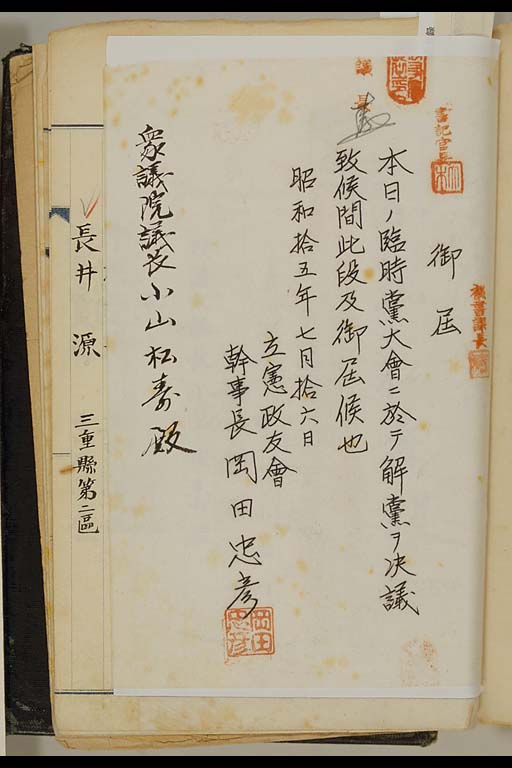 議長
書記官長
秘書課長
御届
本日ノ臨時黨大會ニ於テ解黨ヲ决議
致候間此段及御届候也
昭和拾五年七月拾六日
立憲政友會
幹事長岡田忠彦
岡田忠彦
衆議院議長小山松寿殿
長井源 三重縣第二區